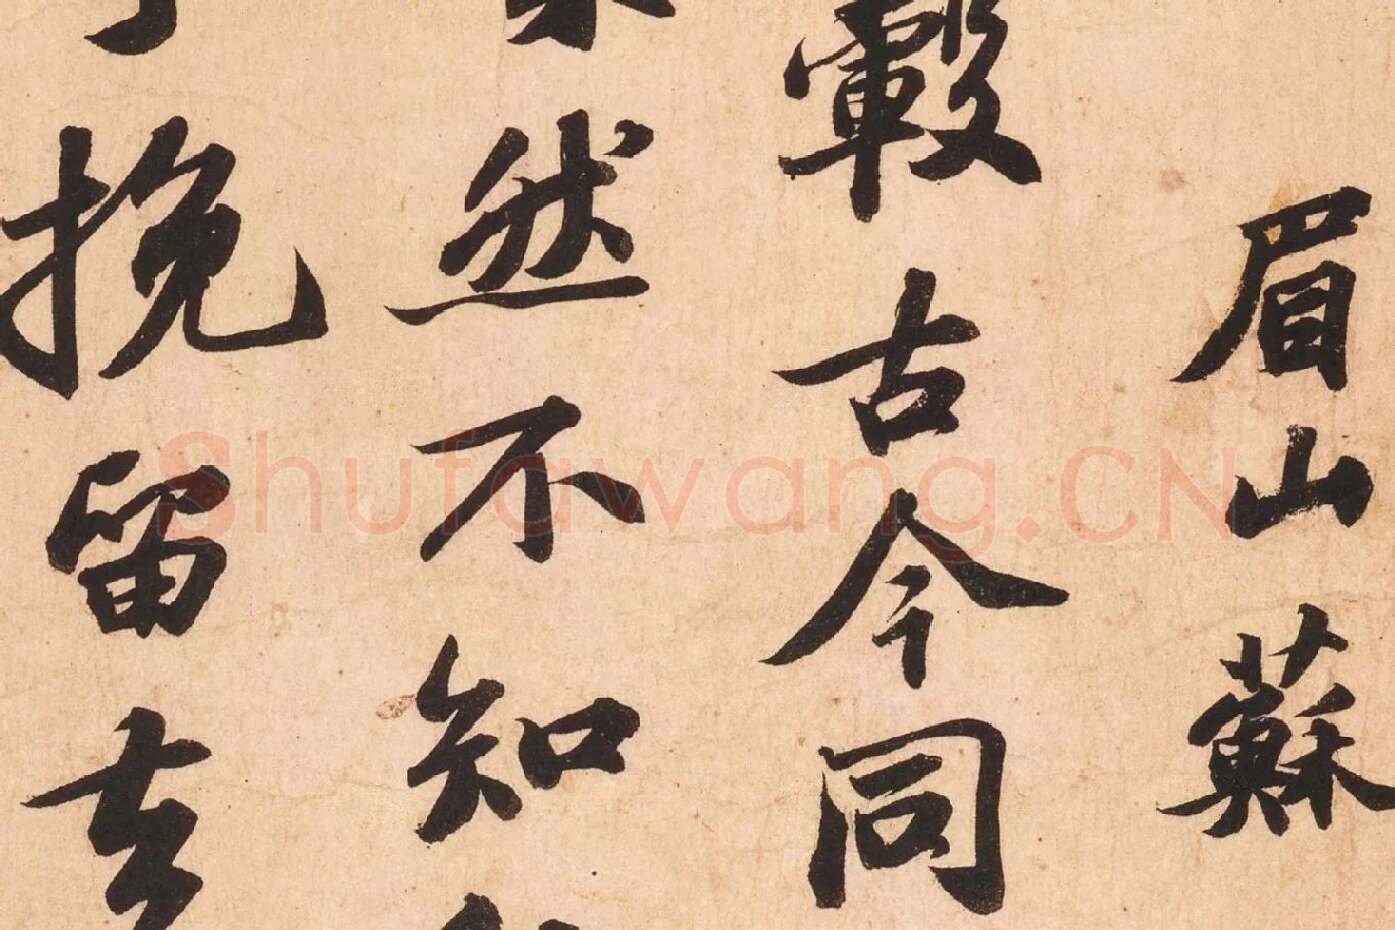 眉山蘇
轂古今同
然不知
挽留去
Shufawang.CN